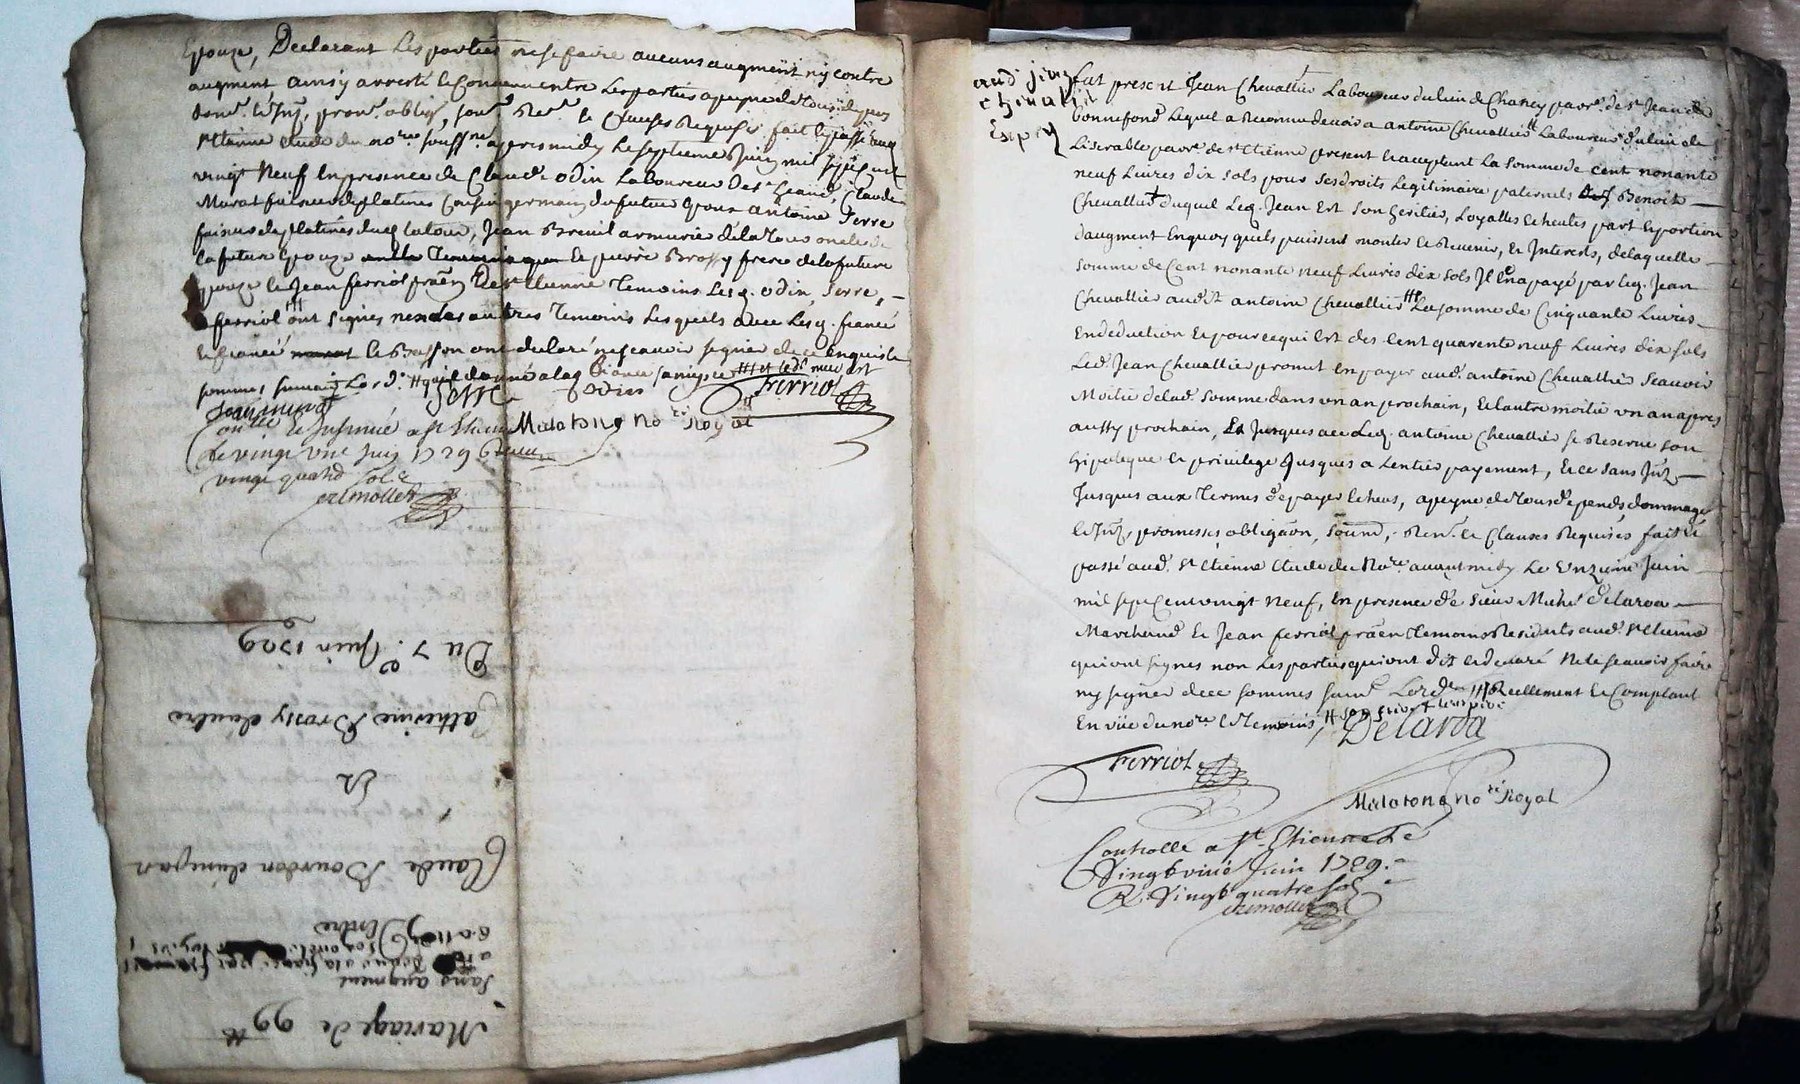 Epouze, Declarant Les parties ne se faire aucuns augment ny contre
augment ainsy arresté et Convenu entre Les parties a peyne de tous depens
dom.e et Int., prom. oblig., soum. Ren. et Clauses Requises fait et passé aud.
St Etienne Etude du no.re souss.né apres midy Le septieme Juin mil sept cent
vingt Neuf En presence de Claude odin Laboureur de St Jean, Claude
Murat faiseur de platines Cousin germain du futur Epoux antoine Serre
faiseur de platines, Jean Breuil armurier de la Tour oncle de
la future Epouze et pierre Brossy frere de la future
Epouze et Jean ferriol pratn de St Etienne Temoins Les q. odin, Serre,
et ferriol ont signés non Les autres Temoins Lesquels avec Les q. fiancé
et fiancée et Brossy ont declaré ne scavoir signer de ce enquis et
sommés suivant Lord.e
Serre odin Ferriol
Jean murat
Conllé et Insinué a St Etienne Malatong no.re Royal
Le vingt une Juin 1729
vingt quatre sols
cremollet
Du 7.e Juin 1729
Catherine Brossy dautre
Et
Claude Bourdon d'une part
sans augment
Mariage de 99 tt
aud. juin
Chevallier
Exp.ée
fut present Jean Chevallier Laboureur du lieu de Chaney parr.e de St Jean de
bonnefond Lequel a Reconnu devoir a antoine Chevallier Laboureur du lieu de
Liserable parr.e de St Etienne present et acceptant La somme de Cent nonante
neuf Livres dix sols pour ses droits Legitimaire paternels Benoit
Chevallier duquel Led. Jean Est son heritier, Loyalles Echeutes part et portion
d'augment En quoy quels puissent monter et Revenir, et Interets, de laquelle
somme de Cent nonante neuf Livres dix sols Il En a payé par Led. Jean
Chevallier audit antoine Chevallier La somme de Cinquante Livres
En deduction Et pour ce qui Est des Cent quarente neuf Livres dix sols
Led. Jean Chevallier promet En payer aud. antoine Chevallier Scavoir
Moitié de lad. somme dans un an prochain, et Lautre moitié un an apres
aussy prochain, Jusques a ce Led. antoine Chevallier se Reserve son
hipoteque et privilege Jusques a Lentier payement, et ce sans Int.
Jusques aux Termes de payer Echeus, a peyne de tous depends dommages
et Int., promesses obligaon, soum., Ren. et Clauses Requises fait et
passé aud. St Etienne Etude du No.re avant midy Le Unzieme Juin
mil sept Cent vingt Neuf, En presence de Sieur Michel Delaroa
Marchand Et Jean ferriol pratn Temoins Residents aud. St Etienne
qui ont signés non Les parties qui ont dit et declaré Ne le scavoir faire
ny signer de ce sommés suiv.t Lord.e Reellement et Comptant
En vüe du no.re et Temoins
Delaroa
Ferriol
Malatong no.re Royal
Controllé a St Etienne Le
Vingt une Juin 1729.
R. Vingt quatre sols
cremollet